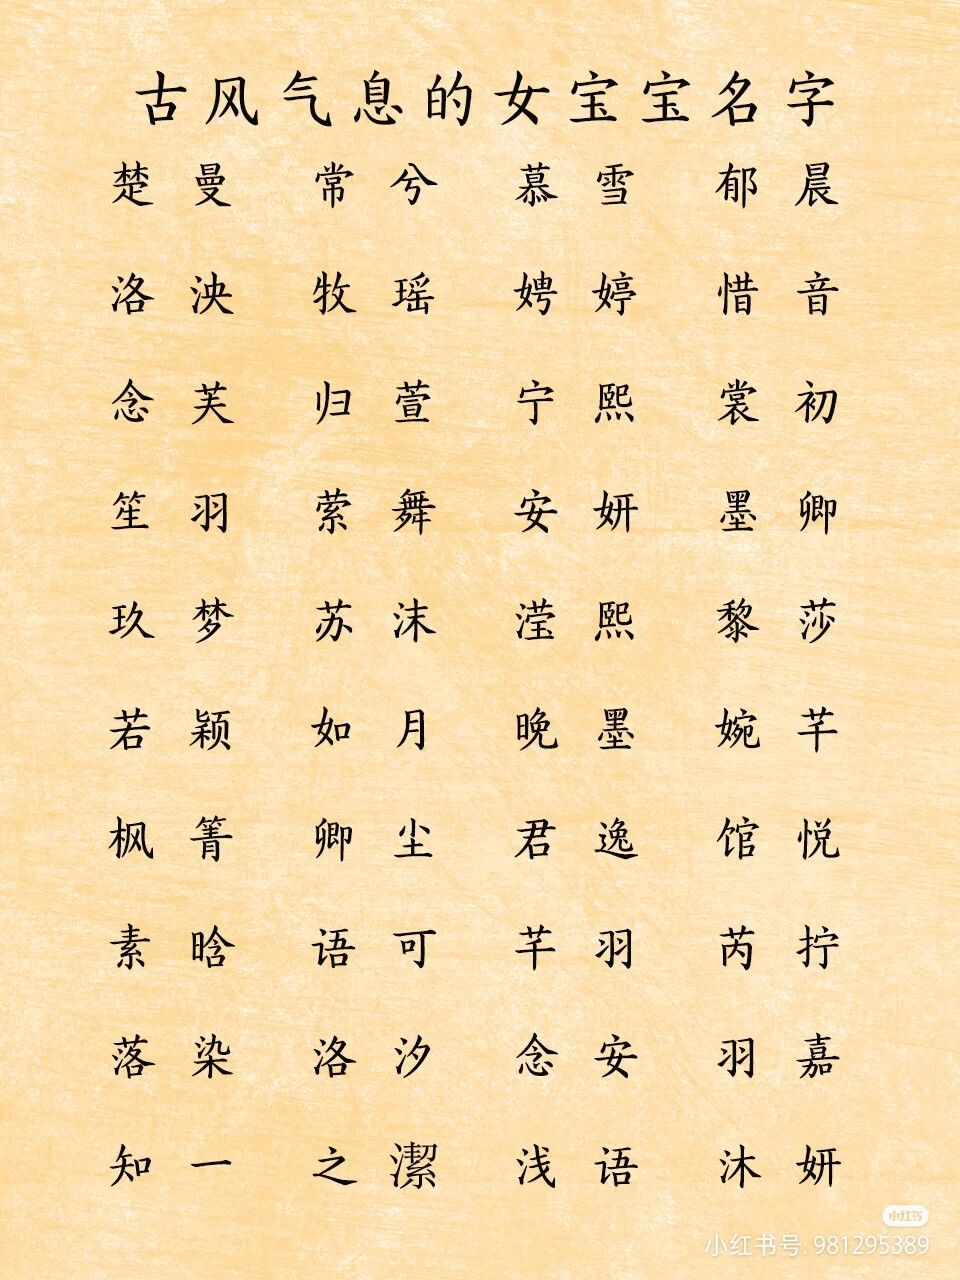 古风气息的女宝宝名字
楚曼 常兮 慕雪 郁晨
洛泱 牧瑶 娉婷 惜音
念芙 归萱 宁熙 裳初
笙羽 萦舞 安妍 墨卿
玖梦 苏沫 滢熙 黎莎
若颖 如月 晚墨 婉芊
枫箐 卿尘 君逸 馆悦
素晗 语可 芊羽 芮拧
落染 洛汐 念安 羽嘉
知一 之潔 浅语 沐妍
小红书
小红书号: 981295389